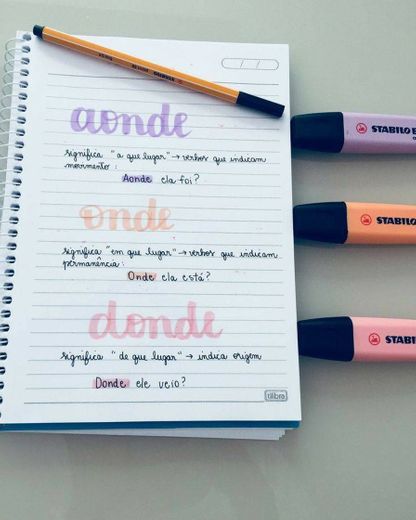 aonde
significa "a que lugar" → verbos que indicam
movimento:
Aonde ela foi?
onde
significa "em que lugar" → verbos que indicam
permanência:
Onde ela está?
donde
significa "de que lugar" → indica origem
Donde ele veio?
tilibra
STABILO
STABILO
STABILO